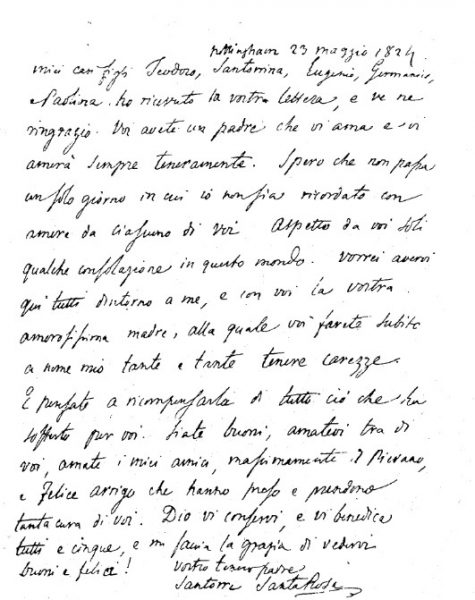 Nottingham 23 maggio 1824
miei cari figli Teodoro, Santorrina, Eugenio, Germanico,
e Paolina. ho ricevuto la vostra lettera, e ve ne
ringrazio. Voi avete un padre che vi ama e vi
amerà sempre teneramente. Spero che non passa
un solo giorno in cui io non sia ricordato con
amore da ciascuno di voi. Aspetto da voi soli
qualche consolazione in questo mondo. Vorrei avervi
qui tutti d'intorno a me, e con voi la vostra
amorosissima madre, alla quale voi farete subito
a nome mio tante e tante tenere carezze.
E pensate a ricompensarla di tutti ciò che ha
sofferto per voi. Siate buoni, amatevi tra di
voi, amate i miei amici, massimamente
e Felice Arrigo che hanno preso e prendono
tanta cura di voi. Dio vi conservi, e vi benedica
tutti e cinque, e mi faccia la grazia di vedervi
buoni e felici!
vostro tenero padre
Santorre SantaRosa